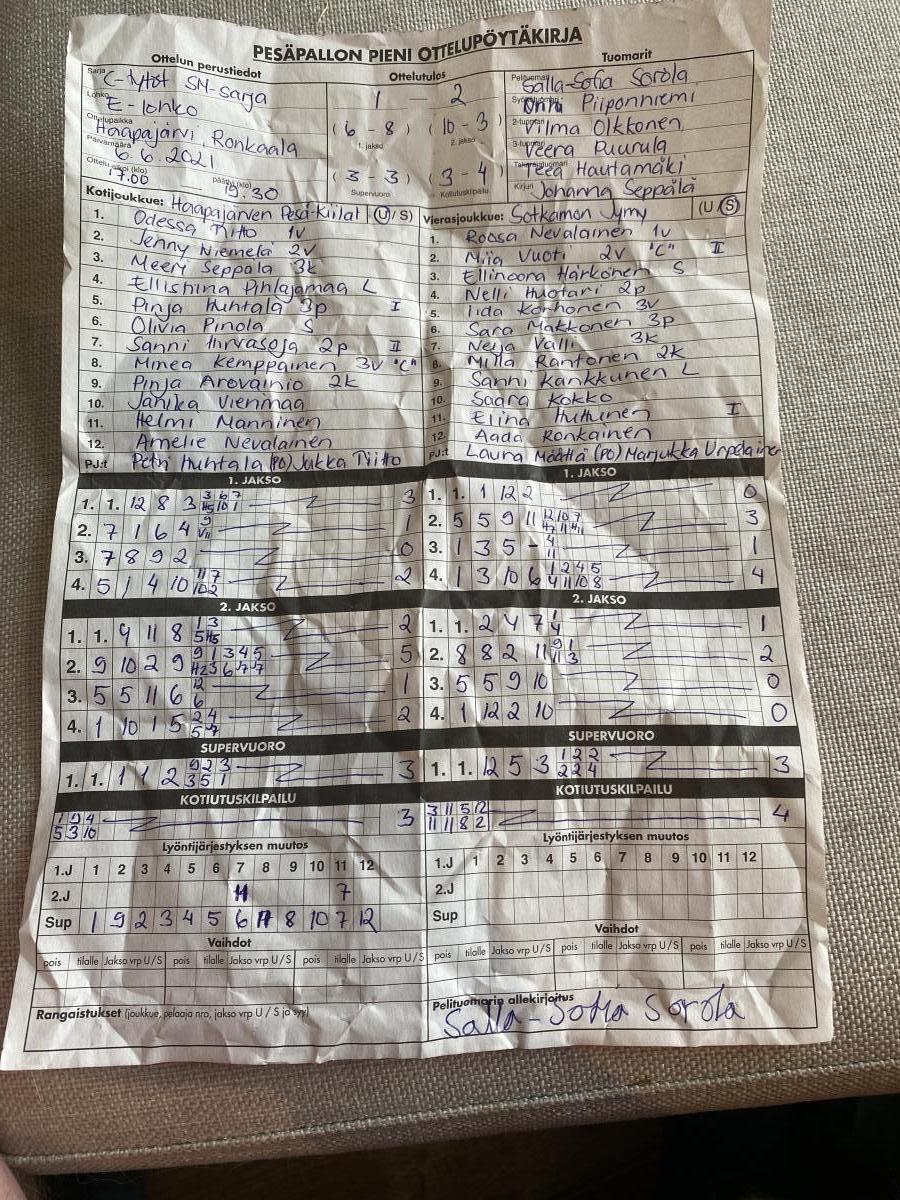 PESÄPALLON PIENI OTTELUPÖYTÄKIRJA
Ottelun perustiedot
Sarja C-tytöt SM-sarja
Lohko E-lohko
Ottelupaikka Haapajärvi, Ronkaala
Päivämäärä 6.6.2021
Ottelu alkoi (klo) 17.00 päättyi (klo) 19.30
Ottelutulos
1 - 2
(6 - 8) (10 - 3)
1. jakso 2. jakso
(3 - 3) (3 - 4)
Supervuoro Kotiutuskilpailu
Tuomarit
Pelituomari Salla-Sofia Sorola
Syöttötuomari Onni Piiponniemi
2-tuomari Vilma Olkkonen
3-tuomari Veera Puurula
Takarajatuomari Teea Hautamäki
Kirjuri Johanna Seppälä
Kotijoukkue: Haapajärven Pesä-Kiilat (U/S)
1. Odessa Tiitto 1v
2. Jenny Niemelä 2v
3. Meeri Seppälä 3k
4. Ellishina Pihlajamaa L
5. Pinja Huhtala 3p I
6. Olivia Pinola S
7. Sanni Hirvasoja 2p II
8. Minea Kemppainen 3v "C"
9. Pinja Arovainio 2k
10. Janika Vienmaa
11. Helmi Manninen
12. Amelie Nevalainen
PJ:t Petri Huhtala (PO) Jukka Tiitto
Vierasjoukkue: Sotkamon Jymy (U/S)
1. Roosa Nevalainen 1v
2. Miia Vuoti 2v "C" II
3. Ellinoora Härkönen S
4. Nelli Huotari 2p
5. Iida Korhonen 3v
6. Sara Makkonen 3p
7. Neija Valli 3k
8. Milla Rantonen 2k
9. Sanni Kankkunen L
10. Saara Kokko
11. Elina Huttunen I
12. Aada Ronkainen
PJ:t Laura Määttä (PO) Marjukka Urpelainen
1. JAKSO
1. 1. 12 8 3 3 6 7 3
2. 7 1 6 4 9 1
3. 7 8 9 2 0
4. 5 1 4 10 11 7 2
10 2
2. JAKSO
1. 1. 9 11 8 1 3 2
2. 9 10 2 9 9 1 3 4 5 5
3. 5 5 11 6 12 1
6
4. 1 10 1 5 2 4 2
5 7
SUPERVUORO
1. 1. 1 1 2 9 2 3 3
3 5 1
KOTIUTUSKILPAILU
1 9 4 3
5 3 10
1. JAKSO
1. 1. 1 12 2 0
2. 5 5 9 11 12 10 7 3
3. 1 3 5 - 4 1
11
4. 1 3 10 6 1 2 4 5 4
4 11 10 8
2. JAKSO
1. 1. 2 4 7 1 1
4
2. 8 8 2 11 9 1 2
11 3
3. 5 5 9 10 0
4. 1 12 2 10 0
SUPERVUORO
1. 1. 12 5 3 1 2 2 3
2 2 4
KOTIUTUSKILPAILU
3 11 5 12 4
11 11 8 2
Lyöntijärjestyksen muutos
1.J 1 2 3 4 5 6 7 8 9 10 11 12
2.J 11 7
Sup 1 9 2 3 4 5 6 11 8 10 7 12
Vaihdot
pois tilalle Jakso vrp U/S pois tilalle Jakso vrp U/S pois tilalle Jakso vrp U/S
Rangaistukset (joukkue, pelaaja nro, jakso vrp U / S ja syy)
Lyöntijärjestyksen muutos
1.J 1 2 3 4 5 6 7 8 9 10 11 12
2.J
Sup
Vaihdot
pois tilalle Jakso vrp U/S pois tilalle Jakso vrp U/S pois tilalle Jakso vrp U/S
Pelituomarin allekirjoitus
Salla-Sofia Sorola